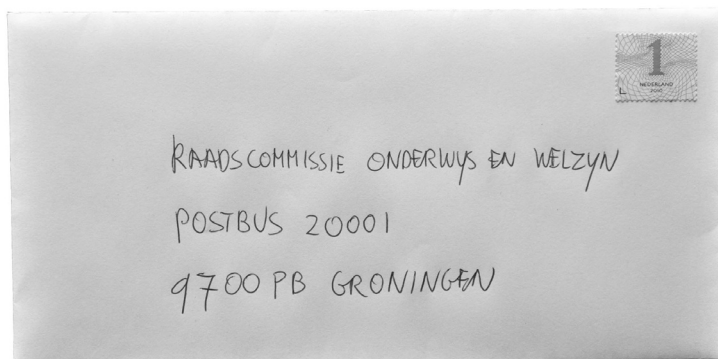 1
NEDERLAND
RAADSCOMMISSIE ONDERWYS EN WELZYN
POSTBUS 20001
9700 PB GRONINGEN